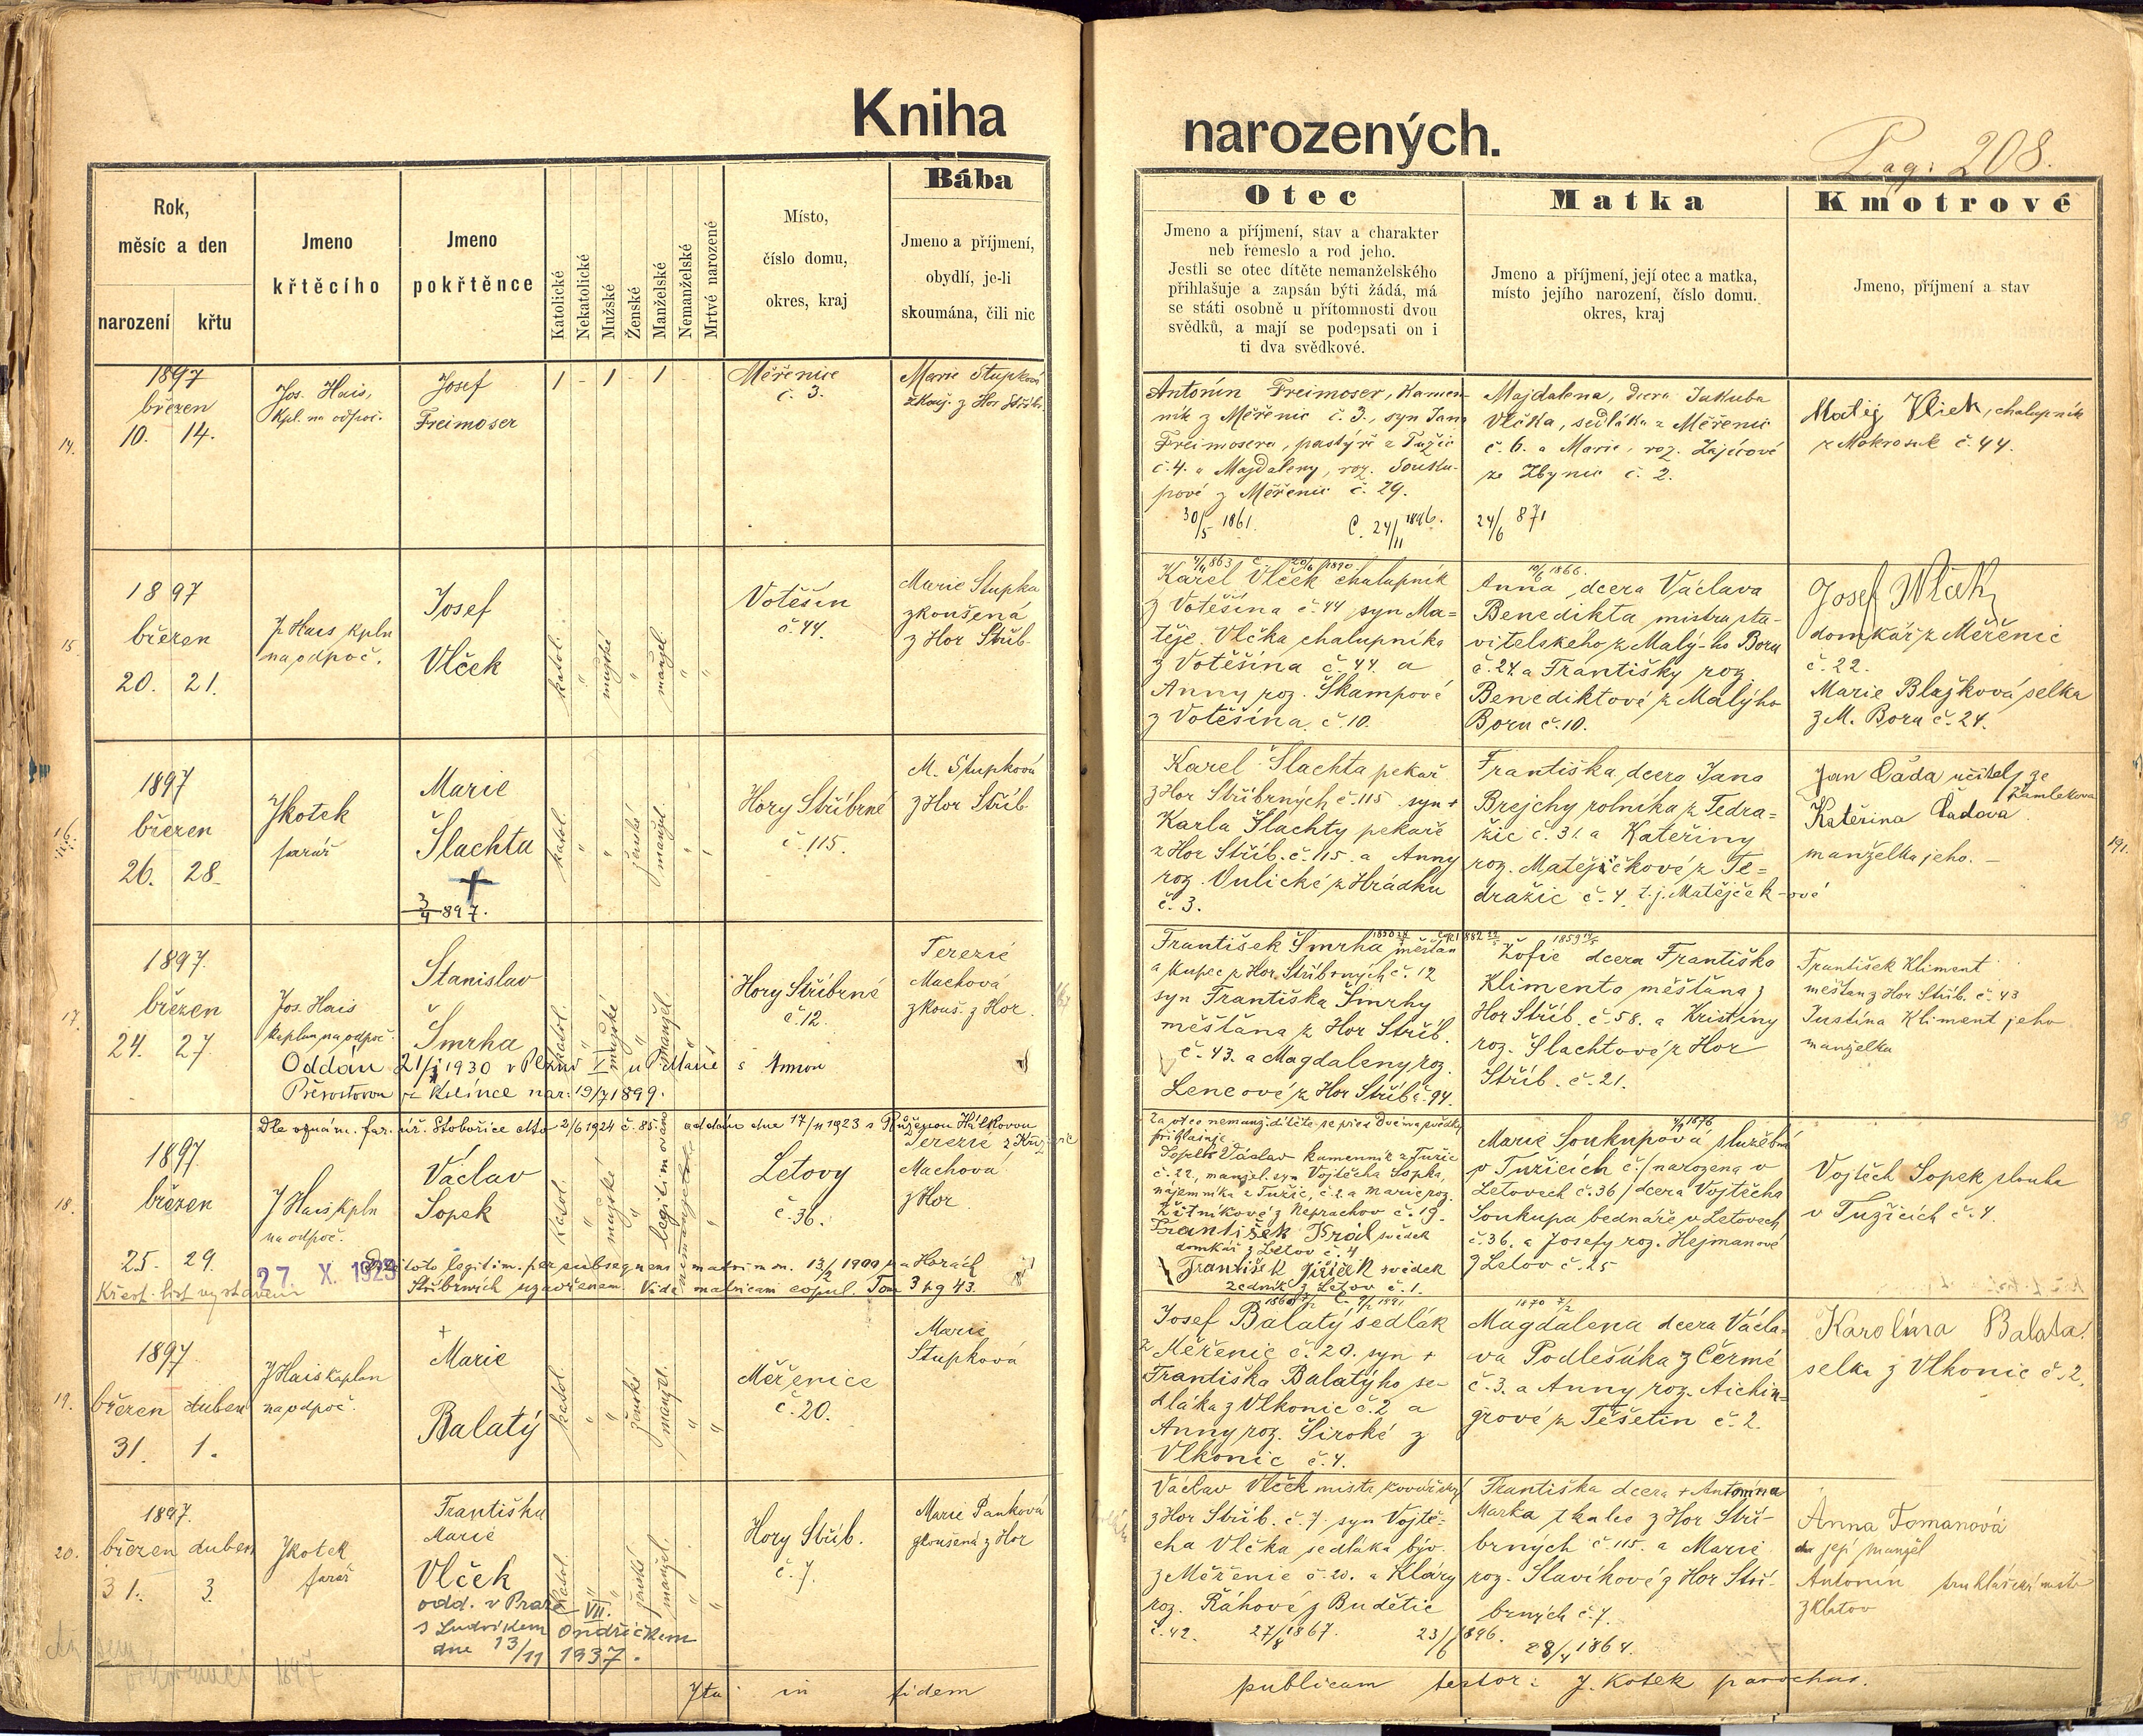 Kniha
narozených.
Pag: 208.
Rok,
měsíc a den
narození
křtu
Jmeno
křtěcího
Jmeno
pokřtěnce
Katolické
Nekatolické
Mužské
Ženské
Manželské
Nemanželské
Mrtvé narozené
Místo,
číslo domu,
okres, kraj
Bába
Jmeno a příjmení,
obydlí, je-li
skoumána, čili nic
Otec
Jmeno a příjmení, stav a charakter
neb řemeslo a rod jeho.
Jestli se otec dítěte nemanželského
přihlašuje a zapsán býti žádá, má
se státi osobně u přítomnosti dvou
svědků, a mají se podepsati on i
ti dva svědkové.
Matka
Jmeno a příjmení, její otec a matka,
místo jejího narození, číslo domu.
okres, kraj
Kmotrové
Jmeno, příjmení a stav
14.
1897
březen
10. 14.
Jos. Hais,
kpl. na odpoč.
Josef
Freimoser
1 - 1 - 1 - -
Měřenice
č. 3.
Marie Stupková
zkouš. z Hor Stříbr.
Antonín Freimoser, kamen-
ník z Měřenic č. 3., syn Jana
Freimosera, pastýře z Tužic
č. 4. a Majdaleny, roz. Souku-
pové z Měřenic č. 29.
30/5 1861. C. 24/11 1896.
Majdalena, dcera Jakuba
Vlčka, sedláka z Měřenic
č. 6. a Marie, roz. Zajícové
ze Zbynic č. 2.
24/6 871
Matěj Vlček, chalupník
z Mokrosuk č. 44.
15.
1897
březen
20. 21.
J. Hais kpln
na odpoč.
Josef
Vlček
katol.
"
mužské
"
manžel.
"
"
Votěšín
č. 44.
Marie Stupka
zkoušená
z Hor Stříb.
Karel Vlček chalupník
z Votěšína č. 44 syn Ma-
těje Vlčka chalupníka
z Votěšína č. 44. a
Anny roz. Škampové
z Votěšína č. 10.
10/6 1866.
Anna, dcera Václava
Benedikta mistra sta-
vitelského z Malý-ho Boru
č. 24. a Františky roz.
Benediktové z Malýho
Boru č. 10.
Josef Wlček
domkář z Měřenic
č. 22.
Marie Blažková selka
z M. Boru č. 24.
16.
1897
březen
26. 28.
J Kotek
farář
Marie
Šlachta
+
3/4 897.
katol.
"
"
ženské
manžel.
"
"
Hory Stříbrné
č. 115.
M. Stupková
z Hor Stříb.
Karel Šlachta pekař
z Hor Stříbrných č. 115 syn +
Karla Šlachty pekaře
z Hor Stříb. č. 115. a Anny
roz. Vulické z Hrádku
č. 3.
Františka, dcera Jana
Brejchy rolníka z Tedra-
žic č. 31. a Kateřiny
roz. Matějíčkové z Te-
dražic č. 4. t. j. Matějček-ové
Jan Čada učitel ze
Žamlekova
Kateřina Čadova
manželka jeho. -
191.
17.
1897.
březen
24. 27.
Jos. Hais
kaplan na odpoč.
Stanislav
Šmrha
katol.
"
mužské
"
manžel.
Hory Stříbrné
č. 12.
Terezie
Machová
zkouš. z Hor.
Oddán 21/1 1930 v Plzni I u P. Marie s Annou
Převostovou z Kolínce nar: 19/7 1899.
František Šmrha měšťan
a kupec z Hor Stříbrných č. 12
syn Františka Šmrhy
měšťana z Hor Stříb.
č. 43. a Magdaleny roz.
Lencové z Hor Stříb č. 94.
Žofie dcera Františka
Klimenta měšťana z
Hor Stříb. č. 58. a Kristiny
roz. Šlachtové z Hor
Stříb. č. 21.
František Kliment
měšťan z Hor Stříb. č. 43
Justina Kliment jeho
manželka
18.
Dle oznám. far. úř. Stobořice dto 2/6 1924 č. 85. oddán dne 17/11 1923 s Růženou Hálkovou
1897
březen
25. 29.
J Hais kpln
na odpoč.
Václav
Sopek
katol.
"
mužské
"
legitimováno
nemanželské
"
Letovy
č. 36.
Terezie
Machová
z Hor
27. X. 1923
Dítě toto legitim. per subsequens matrimon. 13/2 1900 na Horách
Stříbrných uzavřeném. Vide matricam copul. Tom 3 pg 43.
Křest. list vystaven
Za otce nemanž. dítěte se před dvěma svědky
přihlašuje
Sopek Václav kamenník z Tužic
č. 22, manžel. syn Vojtěcha Sopka,
nájemníka z Tužic, č. 2. a Marie roz.
Žitníkové z Neprachov č. 19.
František Král svědek
domkář z Letov č. 4
František Jiřiček svědek
zedník z Letov č. 1.
Marie Soukupová služebná
v Tužicích č. 1 narozena v
Letovech č. 36, dcera Vojtěcha
Soukupa bednáře v Letovech
č. 36. a Josefy roz. Hejmanové
z Letov č. 25
Vojtěch Sopek sloužu
v Tužicích č. 4.
19.
1897.
březen duben
31. 1.
J Hais kaplan
na odpoč.
+
Marie
Balatý
katol.
"
"
ženské
manžel.
"
"
Měřenice
č. 20.
Marie
Stupková
Josef Balatý sedlák
z Měřenic č. 20. syn +
Františka Balatýho se-
dláka z Vlkonic č. 2 a
Anny roz. Široké z
Vlkonic č. 4.
1870 7/2
Magdalena dcera Václa-
va Podlešáka z Čermé
č. 3. a Anny roz. Aichin-
grové z Těšetin č. 2.
Karolína Balata
selka z Vlkonic č. 2.
20.
1897.
březen duben
31. 3.
J Kotek
farář
Františka
Marie
Vlček
odd. v Praze VII.
s Ludvíkem Ondříčkem
dne 13/11 1937.
katol.
"
"
ženské
manžel.
"
"
Hory Stříb.
č. 7.
Marie Panková
zkoušená z Hor
Václav Vlček mistr kovářský
z Hor Stříb. č. 7. syn Vojtě-
cha Vlčka sedláka býv.
z Měřenic č. 20. a Kláry
roz. Ráhové z Budětic
č. 42. 27/8 1867. 23/6 1896.
Františka dcera + Antonína
Marka tkalce z Hor Stří-
brných č. 115. a Marie
roz. Slavíkové z Hor Stří-
brných č. 7.
28/4 1864.
Anna Tomanová
její manžel
Antonín truhlářský mistr
z Klatov
1897
Ita in fidem
publicam testor: J. Kotek parochus.